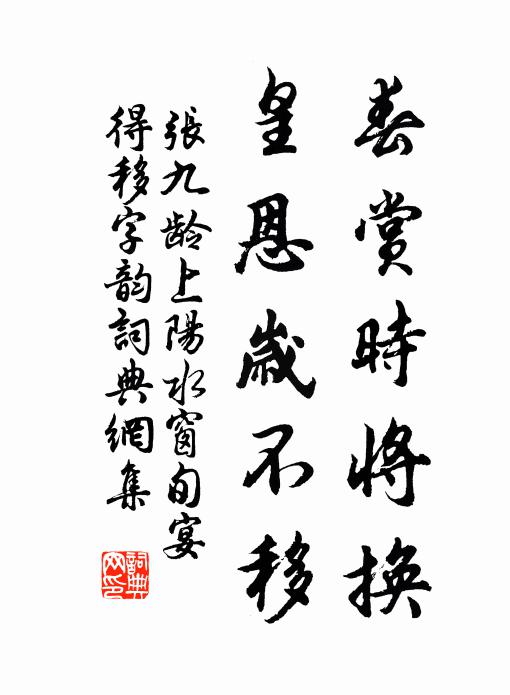 春賞時將換
皇恩歲不移
張九龄上陽水窗旬宴
得移字韵詞典網集
詞典
网印